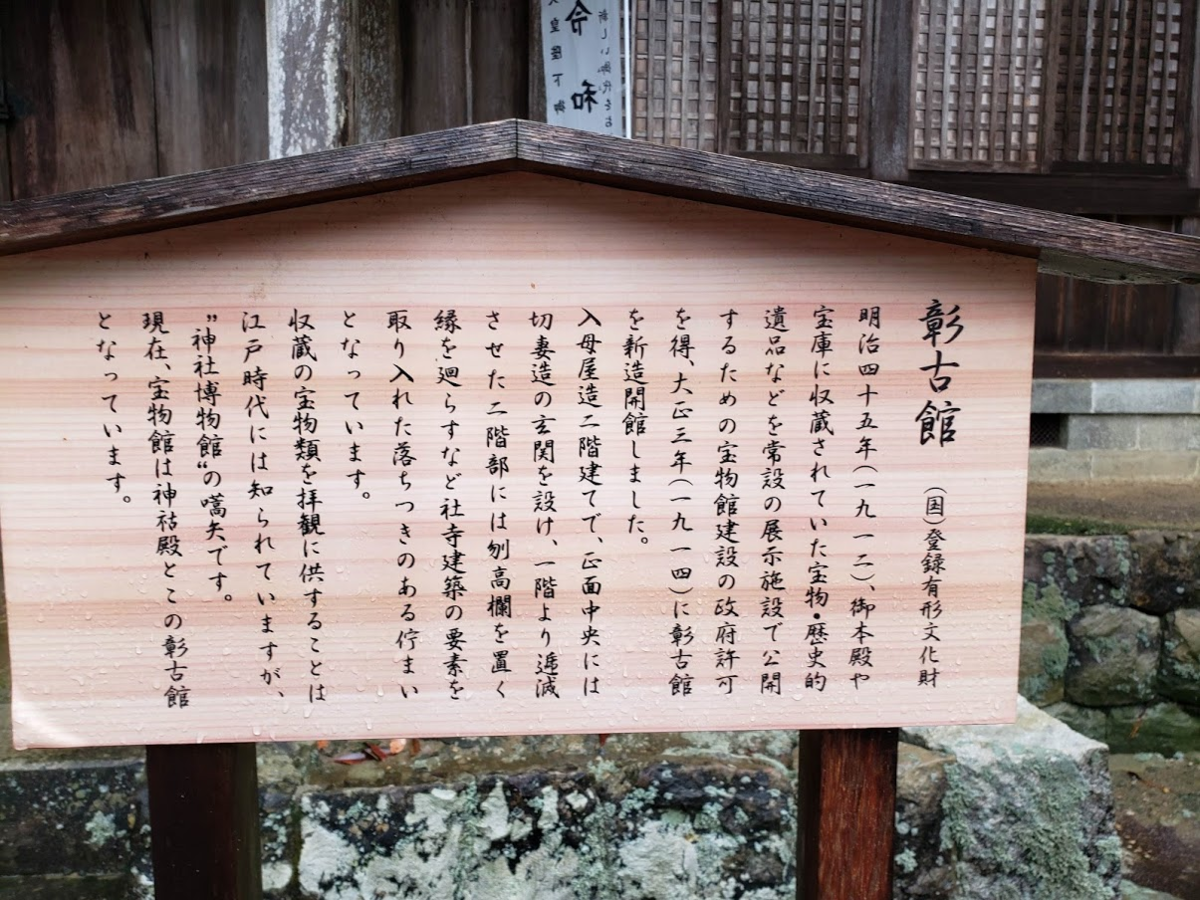 彰古館 (国)登録有形文化財
明治四十五年(一九一二)、御本殿や
宝庫に収蔵されていた宝物・歴史的
遺品などを常設の展示施設で公開
するための宝物館建設の政府許可
を得、大正三年(一九一四)に彰古館
を新造開館しました。
入母屋造二階建てで、正面中央には
切妻造の玄関を設け、一階より逓減
させた二階部には刎高欄を置く
縁を廻らすなど社寺建築の要素を
取り入れた落ちつきのある佇まい
となっています。
収蔵の宝物類を拝観に供することは
江戸時代には知られていますが、
〝神社博物館〟の嚆矢です。
現在、宝物館は神祜殿とこの彰古館
となっています。
新しい御代をお
令和
皇陛下御